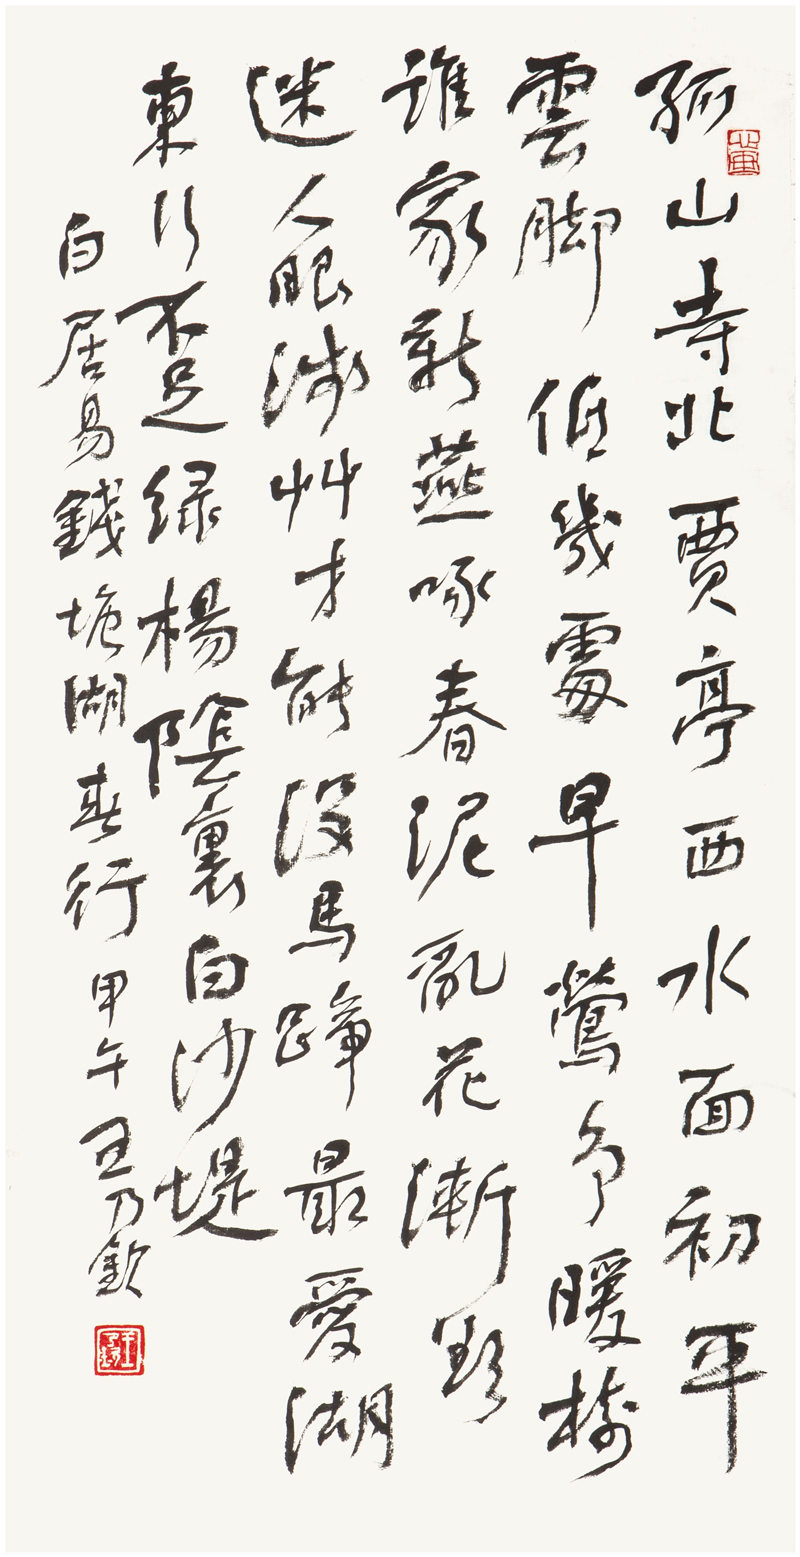 孤山寺北賈亭西水面初平
雲脚低幾處早鶯争暖樹
誰家新燕啄春泥亂花漸欲
迷人眼淺艸才能没馬蹄最愛湖
東行不足緑楊陰裏白沙堤
白居易錢塘湖春行甲午王乃欽